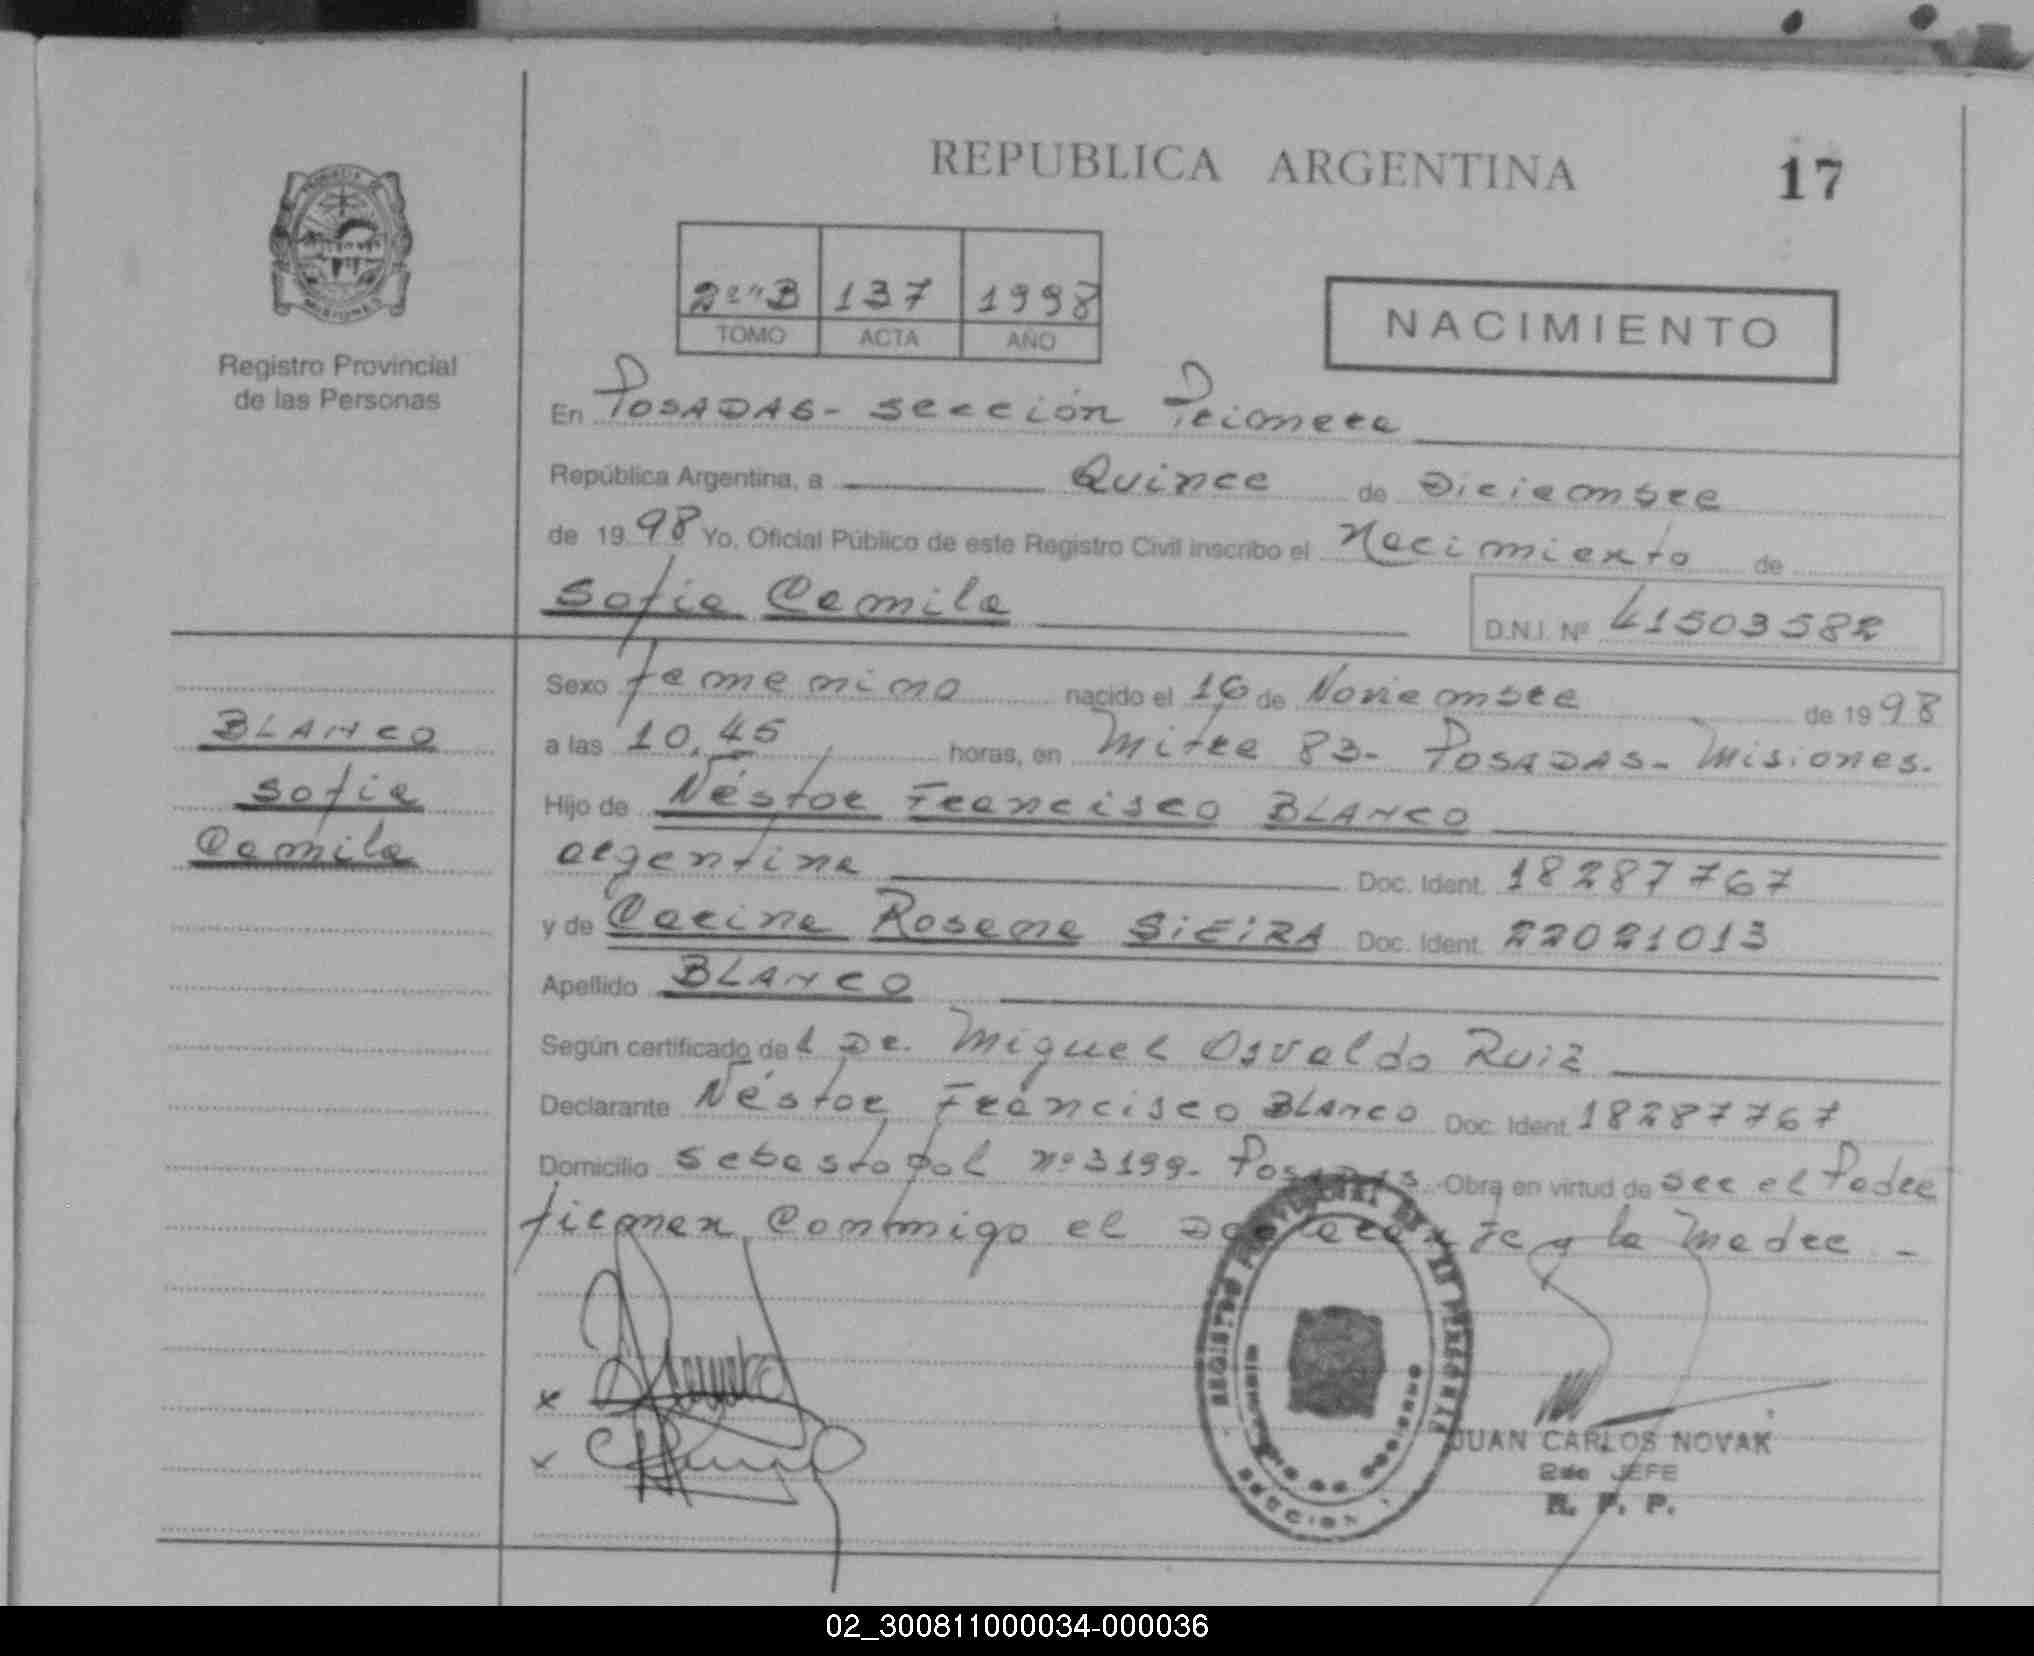 REPUBLICA ARGENTINA
17
2º"B 137 1998
TOMO ACTA AÑO
NACIMIENTO
Registro Provincial
de las Personas
En POSADAS - sección Primera
República Argentina, a Quince de Diciembre
de 1998 Yo, Oficial Público de este Registro Civil inscribo el Nacimiento de
Sofia Camila
D.N.I. Nº 41503582
Sexo femenino nacido el 16 de Noviembre de 1998
a las 10,45 horas, en Mitre 83 - POSADAS - Misiones.
Hijo de Néstor Francisco BLANCO
argentina Doc. Ident. 18287767
y de Carina Rosana SIEIRA Doc. Ident. 22021013
Apellido BLANCO
Según certificado del Dr. Miguel Osvaldo Ruiz
Declarante Néstor Francisco BLANCO Doc. Ident. 18287767
Domicilio Sebastopol nº 3199 - POSADAS Obra en virtud de ser el Padre
firman conmigo el Declarante y la madre -
BLANCO
Sofia
Camila
REGISTRO PROVINCIAL DE LAS PERSONAS
SECCION
JUAN CARLOS NOVAK
2do JEFE
R. P. P.
02_300811000034-000036